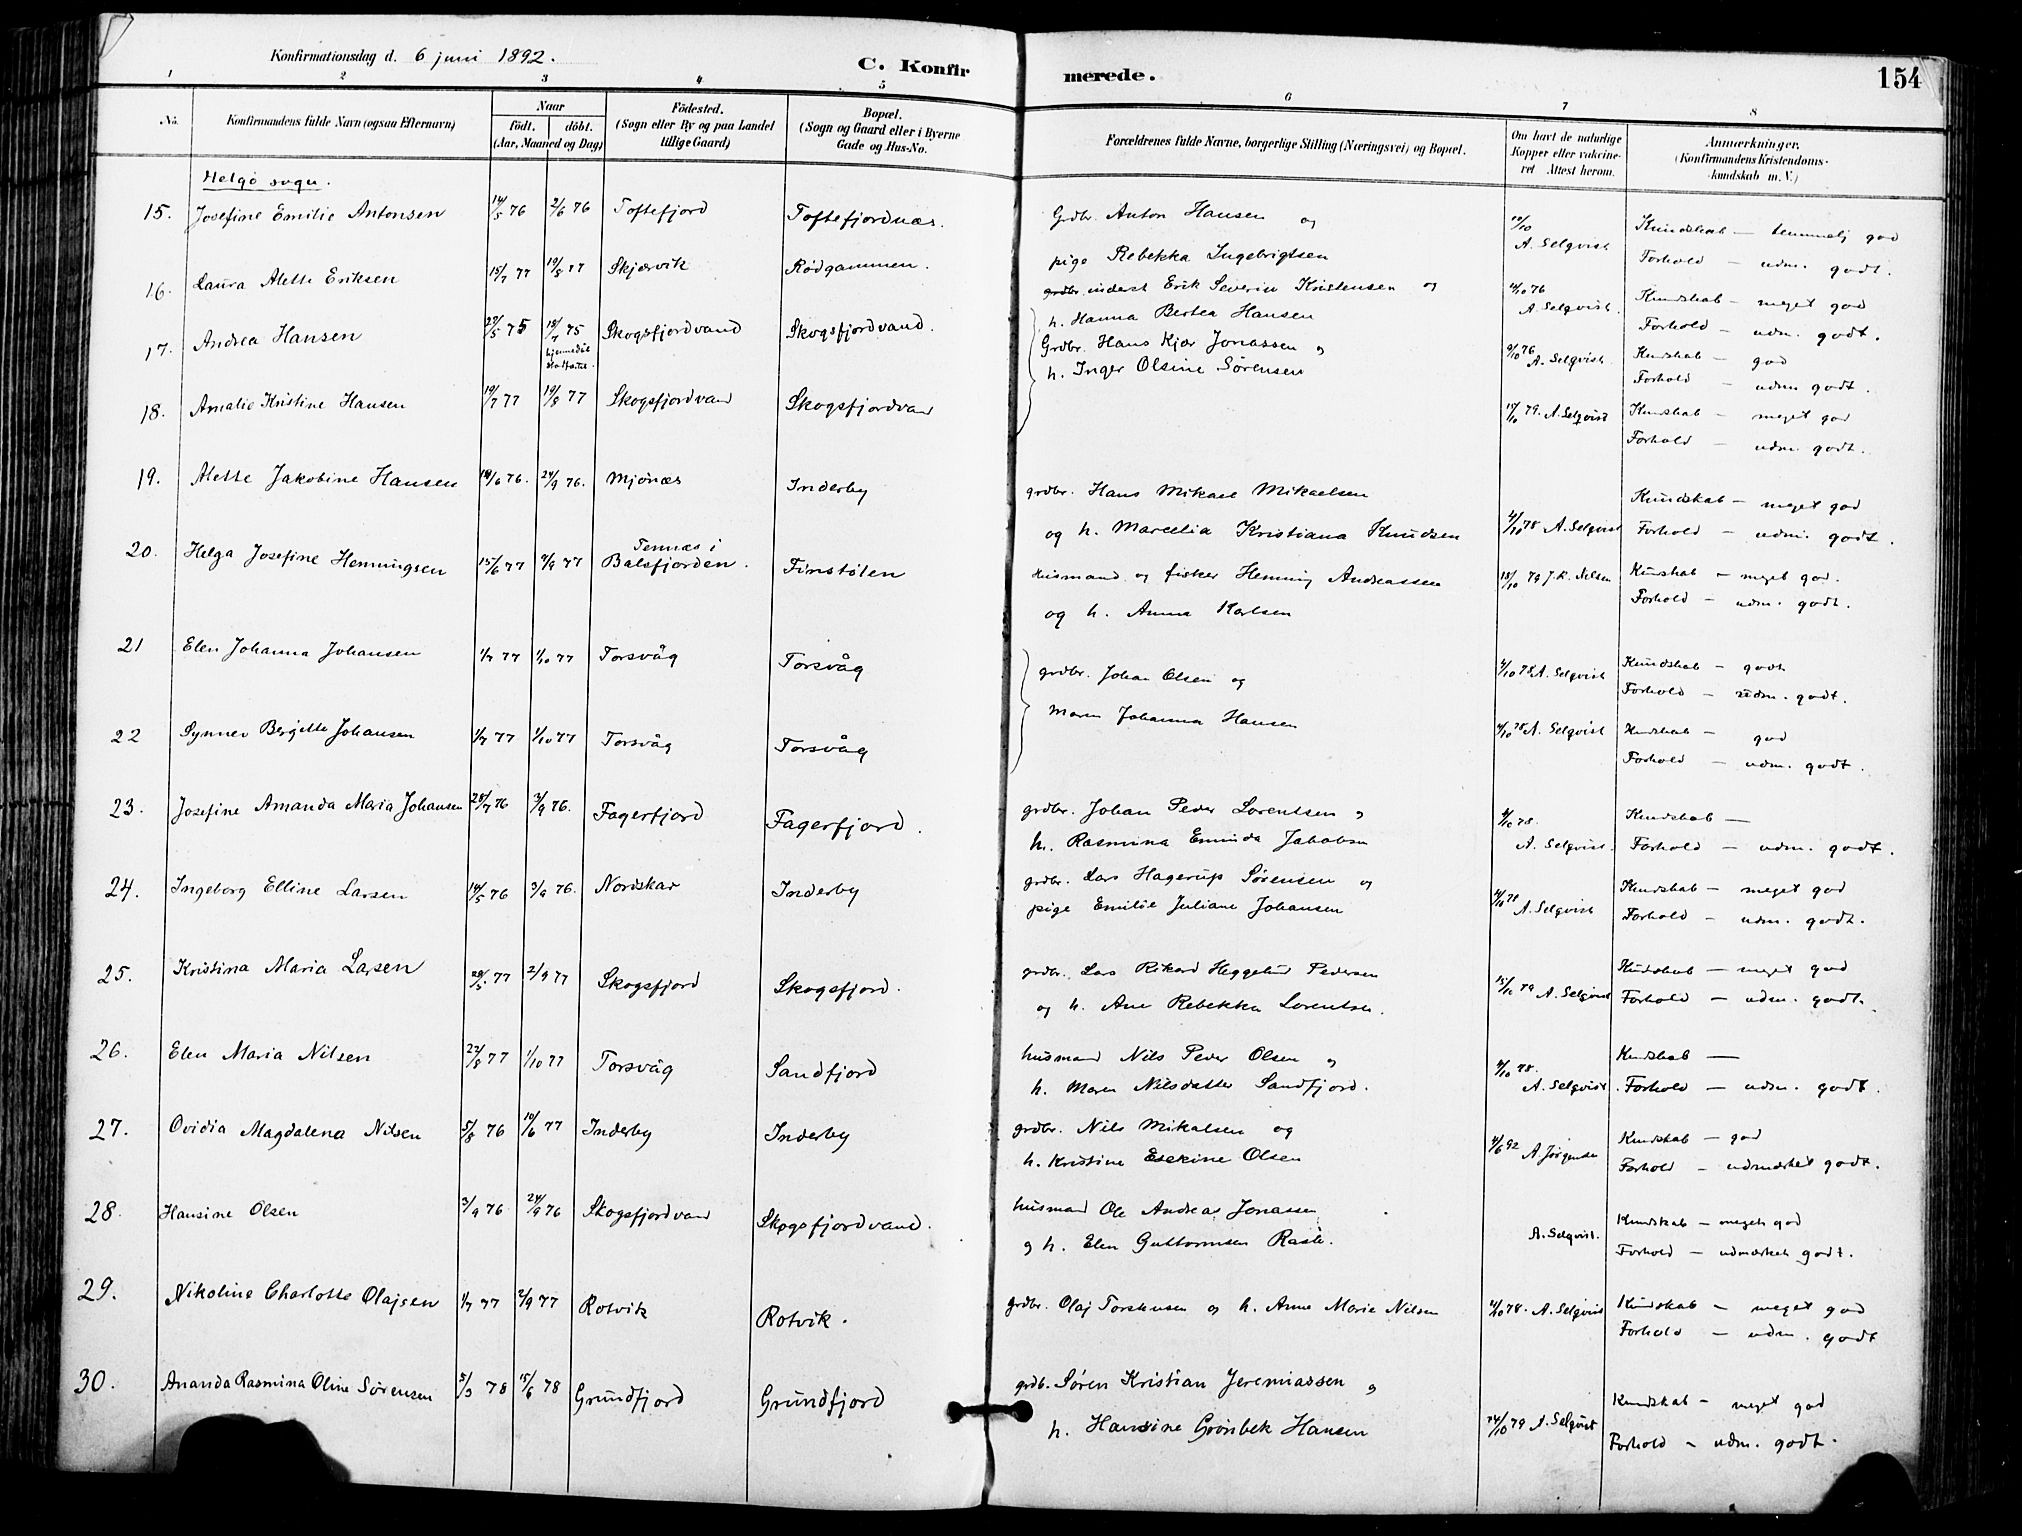 Konfirmationsdag d. 6 juni 1892.
C. Konfirmerede.
154
1 2 3 4 5 6 7 8
No.
Konfirmandens fulde Navn (ogsaa Efternavn)
Naar
födt. döbt.
(Aar, Maaned og Dag)
Födested.
(Sogn eller By og paa Landet
tillige Gaard)
Bopæl.
(Sogn og Gaard eller i Byerne
Gade og Hus-No.
Forældrenes fulde Navne, borgerlige Stilling (Næringsvei) og Bopæl.
Om havt de naturlige
Kopper eller vakcine-
ret Attest herom.
Anmærkninger.
(Konfirmandens Kristendoms-
kundskab m. V.)
Helgø sogn.
15. Josefine Emilie Antonsen 14/5 76 2/6 76 Toftefjord Toftefjordnæs. Grdbr. Anton Hansen og
pige Rebekka Ingebrigtsen
A. Selqvist
Kundskab — temmelig god
Forhold — udm. godt.
16. Laura Alette Eriksen 15/7 77 19/8 77 Skjærvik Rødgammen. grdbr. inderst Erik Severin Kristensen og
h. Hanna Bertea Hansen
A. Selqvist.
Kundskab — meget god
Forhold — udm. godt.
17. Andrea Hansen 27/5 75 18/7 75 Skogsfjordvand Skogsfjordvand. Grdbr. Hans Kjær Jonassen og
hjemmedøbt
h. Inger Olsine Sørensen
9/10 76 A. Selqvist.
Kundskab — god
Forhold — udm godt.
18. Amalie Kristine Hansen 19/7 77 19/8 77 Skogsfjordvand Skogsfjordvand
18/10 79. A. Selqvist
Kundskab — meget god
Forhold — udm. godt.
19. Alette Jakobine Hansen 18/6 76. 24/9 76. Mjönæs Inderby grdbr. Hans Mikael Mikaelsen
og h. Marcelia Kristiana Knudsen
4/10 78 A. Selqvist
Kundskab — meget god
Forhold — udm. godt.
20. Helga Josefine Hemmingsen 15/6 77 9/9 77 Tennæs i
Balsfjorden. Finstølen Husmand og fisker Henning Andreassen
og h. Anna Karlsen
18/10 79 J. K. Nilsen
Kundskab — meget god.
Forhold — udm. godt.
21 Elen Johanna Johansen 1/7 77 1/10 77 Torsvåg Torsvåg grdbr. Johan Olsen og
4/10 78 A. Selqvist
Kundskab — godt
Forhold — udm. godt.
22 Synnev Bergitte Johansen 1/7 77 1/10 77 Torsvåg Torsvåg Maren Johanna Hansen
4/10 78 A. Selqvist
Kundskab — god
Forhold — udm. godt.
23. Josefine Amanda Maria Johansen 28/7 76 3/9 76. Fagerfjord Fagerfjord. grdbr. Johan Peder Lorentsen og
h. Rasmina Eminda Jakobsen
4/10 78. A. Selqvist.
Kundskab —
Forhold — udm. godt.
24. Ingeborg Elline Larsen 14/5 76 3/9 76. Nordskar Inderby grdbr. Lars Hagerup Sørensen og
pige Emilie Juliane Johansen
4/10 78 A. Selqvist
Kundskab — meget god
Forhold — udm. godt.
25. Kristina Maria Larsen 29/5 77 2/9 77 Skogsfjord Skogsfjord. grdbr. Lars Rikard Heggelund Pedersen
og h. Ane Rebekka Lorentsen.
15/10 79 A. Selqvist
Kundskab — meget god
Forhold — udm. godt.
26. Elen Maria Nilsen 22/8 77 1/10 77 Torsvåg Sandfjord husmand Nils Peder Olsen og
h. Maren Nilsdatter Sandfjord.
4/10 78. A. Selqvist.
Kundskab —
Forhold — udm. godt.
27. Ovidia Magdalena Nilsen 5/8 76 10/6 77 Inderby Inderby grdbr. Nils Mikalsen og
h. Kristine Eskine Olsen
4/6 92 A. Jørgensen
Kundskab — god
Forhold — udmærket godt.
28. Hansine Olsen 3/9 76 24/9 76 Skogsfjordvand Skogsfjordvand. husmand Ole Andreas Jonassen
og h. Elen Guttormsen Rasle.
A. Selqvist.
Kundskab — meget god
Forhold — udmærket godt.
29. Nikoline Charlotte Olajsen 1/7 77 2/9 77 Rotvik Rotvik. grdbr. Olaj Torstensen og h. Anne Marie Nilsen
4/10 78. A. Selqvist
Kundskab — meget god
Forhold — udm. godt
30. Ananda Rasmina Oline Sørensen 5/3 78 15/6 78 Grundfjord Grundfjord grdb. Søren Kristian Jeremiassen og
h. Hansine Grønbek Hansen
14/10 79 A. Selqvist
Kundskab — meget god
Forhold — udm. godt.